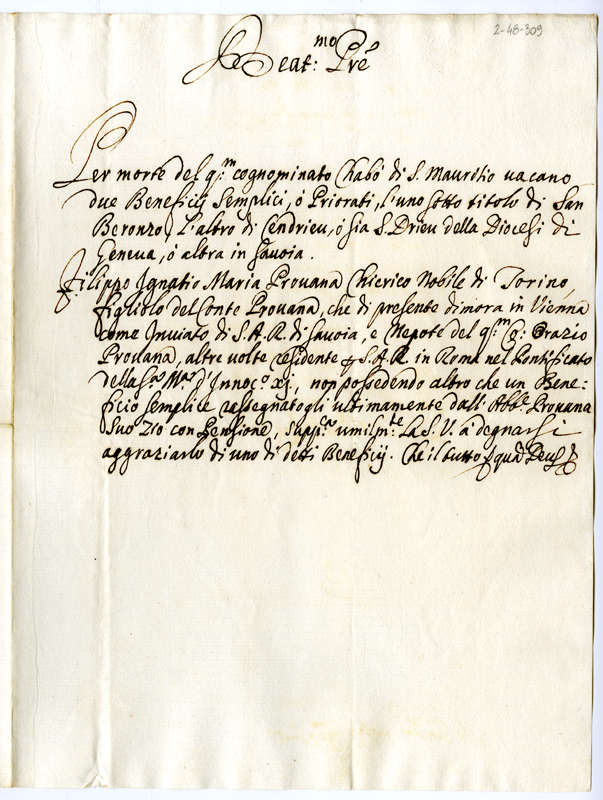 2-48-309
Beat:mo Pre
Per morte del q:m cognominato Chabò di S. Mauritio vacano
due Beneficij Semplici, ò Priorati, l'uno sotto titolo di San
Beronzo, l'altro di Cendrieu, ò sia S. Drieu della Diocesi di
Geneva, ò altra in Savoia.
Filippo Ignatio Maria Provana Chierico Nobile di Torino,
figliolo del Conte Provana, che di presente dimora in Vienna
come Inviato di S. A. R. di Savoia, e Nepote del q:m Orazio
Provana, altre volte residente S. A. R. in Roma nel Pontificato
della d'Innoc:o xj, non possedendo altro che un Bene:
ficio semplice rassegnatogli ultimamente dall' Abb:e Provana
Suo Zio con Pensione, supp:ca umilm:te la S. V. à degnarsi
aggraziarlo di uno di detti Beneficij. Che il tutto quà Deus